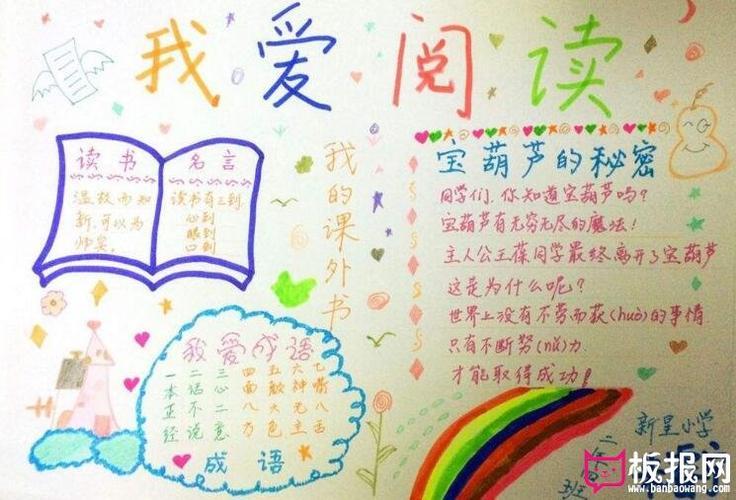 我爱阅读
读书
温故而知
新,可以为
师矣。
名言
读书有三到
心到
眼到
口到
我的课外书
宝葫芦的秘密
同学们,你知道宝葫芦吗?
宝葫芦有无穷无尽的魔法!
主人公王葆同学最终离开了宝葫芦
这是为什么呢?
世界上没有不劳而获(huò)的事情
只有不断努(nǔ)力
才能取得成功!
我爱成语
一本正经
二话不说
三心二意
四面八方
五颜六色
六神无主
七嘴八舌
成语
新星小学
板报网
www.banbaowang.com